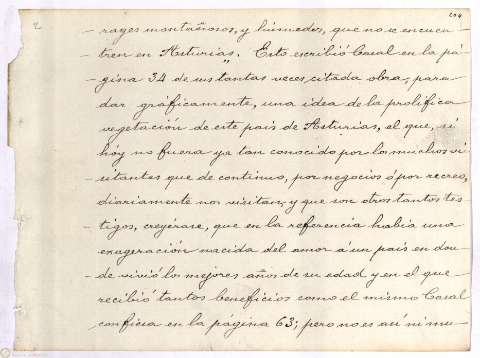 2
- rages montañosos, y húmedos, que no se encuen-
- tren en Asturias". Esto escribió Casal en la pá-
- gina 34 de sus tantas veces citada obra, para
- dar gráficamente, una idea de la prolífica
vegetación de este país de Asturias, el que, si
hóy no fuera ya tan conocido por los muchos vi-
- sitantes que de continuo, por negocios ó por recreo,
diariamente nos visitan, y que son otros tantos tes-
- tigos, creyérase, que en la referencia había una
exageración nacida del amor á un país en don-
- de vivió los mejores años de su edad y en el que
recibió tantos beneficios como el mismo Casal
confiesa en la página 63; pero no es así ni mu-